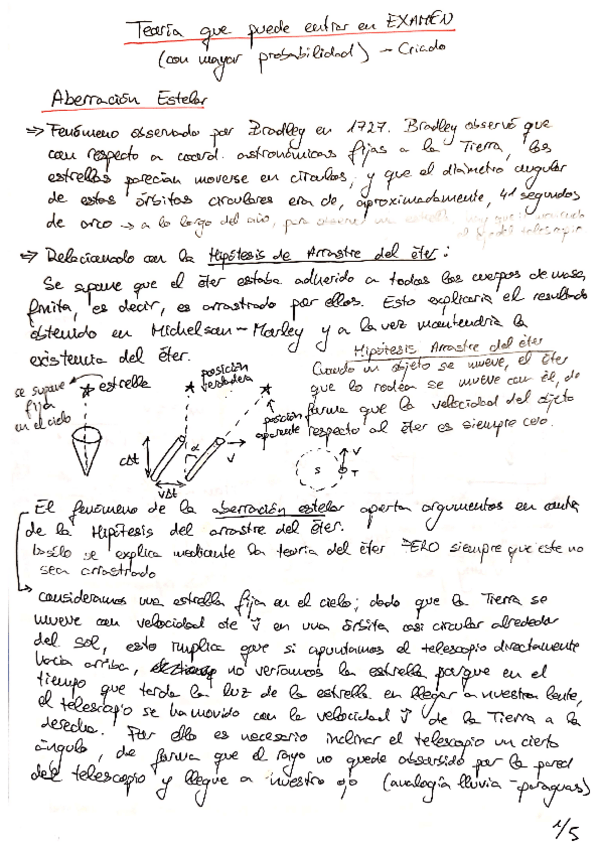 Teoría que puede entrar en EXAMEN
(con mayor probabilidad) - Criado
Aberración Estelar
⇒ Fenómeno observado por Bradley en 1727. Bradley observó que
con respecto a coord. astronómicas fijas a la Tierra, las
estrellas parecían moverse en círculos, y que el diámetro angular
de estas órbitas circulares era de, aproximadamente, 41 segundos
de arco → a lo largo del año, para observar una estrella, hay que
el telescopio
⇒ Relacionado con la Hipótesis de Arrastre del éter:
Se supone que el éter estaba adherido a todos los cuerpos de masa
finita, es decir, es arrastrado por ellos. Esto explicaría el resultado
obtenido en Michelson-Morley y a la vez mantendría la
existencia del éter.
Hipótesis Arrastre del éter
Cuando un objeto se mueve, el éter
que lo rodea se mueve con él, de
forma que la velocidad del objeto
respecto al éter es siempre cero.
se supone
fija
en el cielo
estrella
posición
verdadera
posición
aparente
cΔt
α
v
vΔt
S
v
T
El fenómeno de la aberración estelar aporta argumentos en contra
de la Hipótesis del arrastre del éter.
↳ sólo se explica mediante la teoría del éter PERO siempre que este no
sea arrastrado
Consideramos una estrella fija en el cielo; dado que la Tierra se
mueve con velocidad de v⃗ en una órbita casi circular alrededor
del sol, esto implica que si apuntamos el telescopio directamente
hacia arriba, no veríamos la estrella porque en el
tiempo que tarda la luz de la estrella en llegar a nuestra lente,
el telescopio se ha movido con la velocidad v⃗ de la Tierra a la
derecha. Por ello es necesario inclinar el telescopio un cierto
ángulo, de forma que el rayo no quede absorbido por la pared
del telescopio y llegue a nuestro ojo (analogía lluvia-paraguas)
1/5